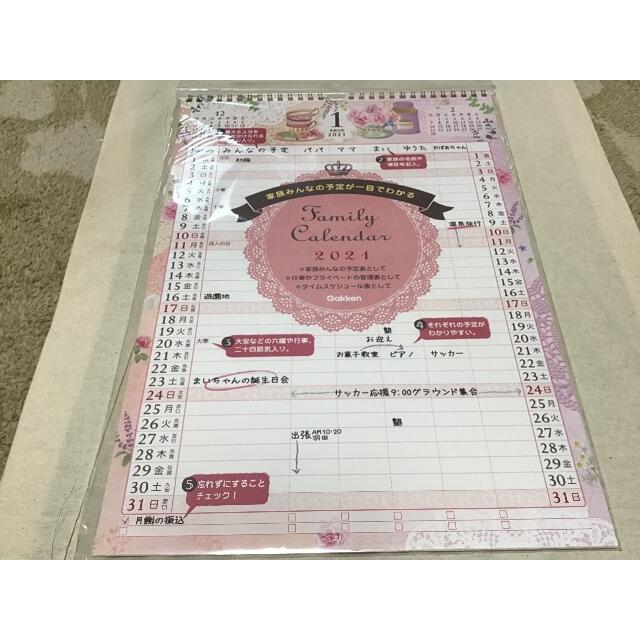 12
1
2021
2
みんなの予定 パパ ママ まい ゆうた おばあちゃん
2 家族の名前や
項目を記入。
家族みんなの予定が一目でわかる
Family
Calendar
2021
＊家族みんなの予定表として
＊仕事やプライベートの管理表として
＊タイムスケジュール表として
Gakken
1 金
2 土
3 日
4 月
5 火
6 水
7 木
8 金
9 土
10 日
11 月 成人の日
12 火
13 水
14 木
15 金
16 土 遊園地
17 日
18 月
19 火
20 水 大寒
21 木
22 金
23 土 まいちゃんの誕生日会
24 日
25 月
26 火
27 水
28 木
29 金
30 土
31 日
温泉旅行
3 大安などの六曜や行事、
二十四節気入り。
塾
お迎え
4 それぞれの予定が
わかりやすい。
お菓子教室 ピアノ サッカー
サッカー応援9:00グラウンド集合
塾
出張 AM10:20
羽田
5 忘れずにすること
チェック！
✓ 月謝の振込
1 金
2 土
3 日
4 月
5 火
6 水
7 木
8 金
9 土
10 日
11 月
12 火
13 水
14 木
15 金
16 土
17 日
18 月
19 火
20 水
21 木
22 金
23 土
24 日
25 月
26 火
27 水
28 木
29 金
30 土
31 日